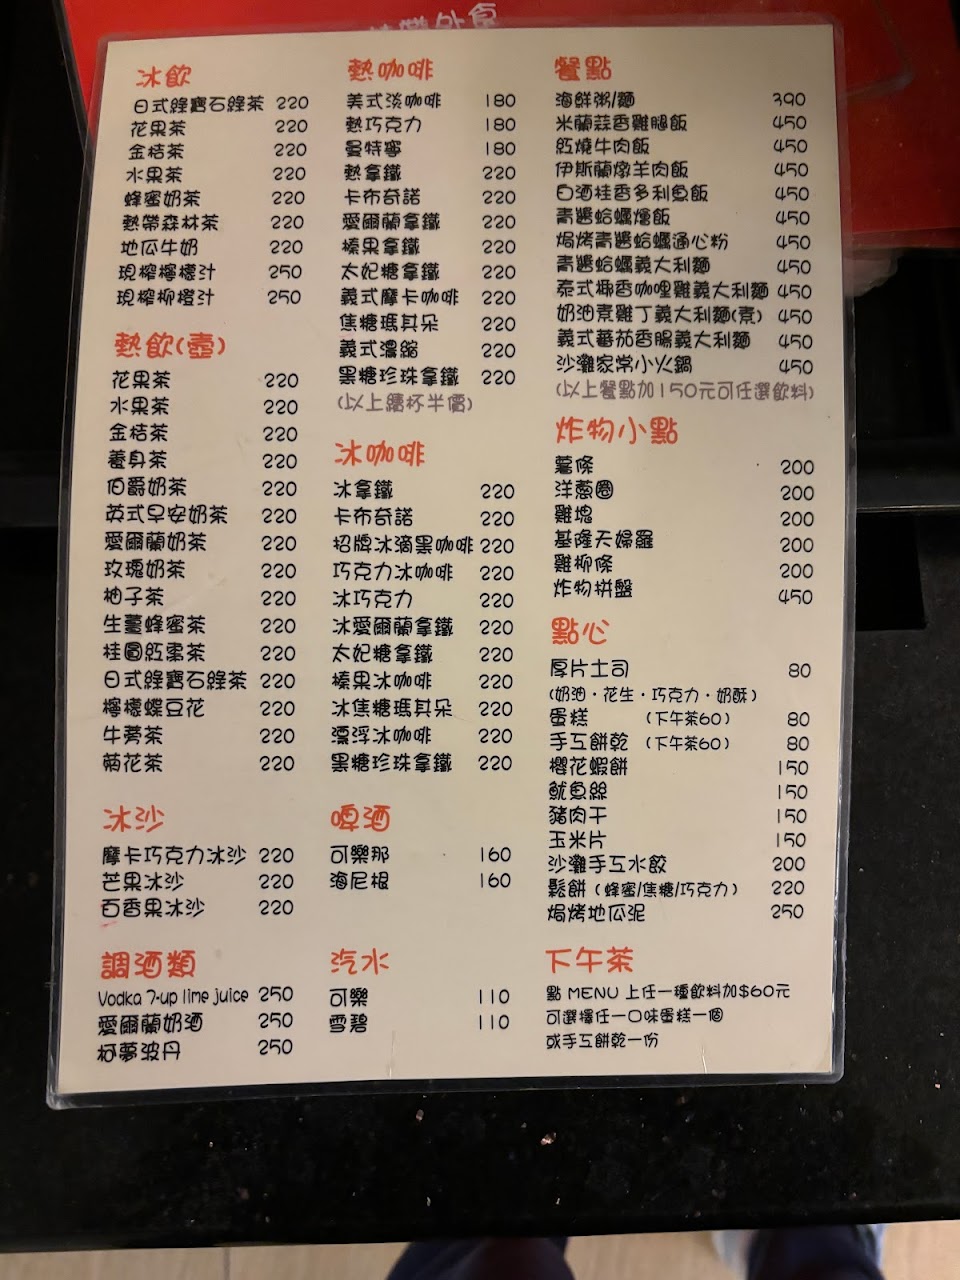 禁帶外食
冰飲
日式綠寶石綠茶 220
花果茶 220
金桔茶 220
水果茶 220
蜂蜜奶茶 220
熱帶森林茶 220
地瓜牛奶 220
現榨檸檬汁 250
現榨柳橙汁 250
熱飲(壺)
花果茶 220
水果茶 220
金桔茶 220
養身茶 220
伯爵奶茶 220
英式早安奶茶 220
愛爾蘭奶茶 220
玫瑰奶茶 220
柚子茶 220
生薑蜂蜜茶 220
桂圓紅棗茶 220
日式綠寶石綠茶 220
檸檬蝶豆花 220
牛蒡茶 220
菊花茶 220
冰沙
摩卡巧克力冰沙 220
芒果冰沙 220
百香果冰沙 220
調酒類
Vodka 7-up lime juice 250
愛爾蘭奶酒 250
柯夢波丹 250
熱咖啡
美式淡咖啡 180
熱巧克力 180
曼特寧 180
熱拿鐵 220
卡布奇諾 220
愛爾蘭拿鐵 220
榛果拿鐵 220
太妃糖拿鐵 220
義式摩卡咖啡 220
焦糖瑪其朵 220
義式濃縮 220
黑糖珍珠拿鐵 220
(以上續杯半價)
冰咖啡
冰拿鐵 220
卡布奇諾 220
招牌冰滴黑咖啡 220
巧克力冰咖啡 220
冰巧克力 220
冰愛爾蘭拿鐵 220
太妃糖拿鐵 220
榛果冰咖啡 220
冰焦糖瑪其朵 220
漂浮冰咖啡 220
黑糖珍珠拿鐵 220
啤酒
可樂那 160
海尼根 160
汽水
可樂 110
雪碧 110
餐點
海鮮粥/麵 390
米蘭蒜香雞腿飯 450
紅燒牛肉飯 450
伊斯蘭燉羊肉飯 450
白酒桂香多利魚飯 450
青醬蛤蠣燉飯 450
焗烤青醬蛤蠣通心粉 450
青醬蛤蠣義大利麵 450
泰式椰香咖哩雞義大利麵 450
奶油素雞丁義大利麵(素) 450
義式蕃茄香腸義大利麵 450
沙灘家常小火鍋 450
(以上餐點加150元可任選飲料)
炸物小點
薯條 200
洋蔥圈 200
雞塊 200
基隆天婦羅 200
雞柳條 200
炸物拼盤 450
點心
厚片土司 80
(奶油・花生・巧克力・奶酥)
蛋糕 (下午茶60) 80
手工餅乾 (下午茶60) 80
櫻花蝦餅 150
魷魚絲 150
豬肉干 150
玉米片 150
沙灘手工水餃 200
鬆餅(蜂蜜/焦糖/巧克力) 220
焗烤地瓜泥 250
下午茶
點 MENU 上任一種飲料加$60元
可選擇任一口味蛋糕一個
或手工餅乾一份